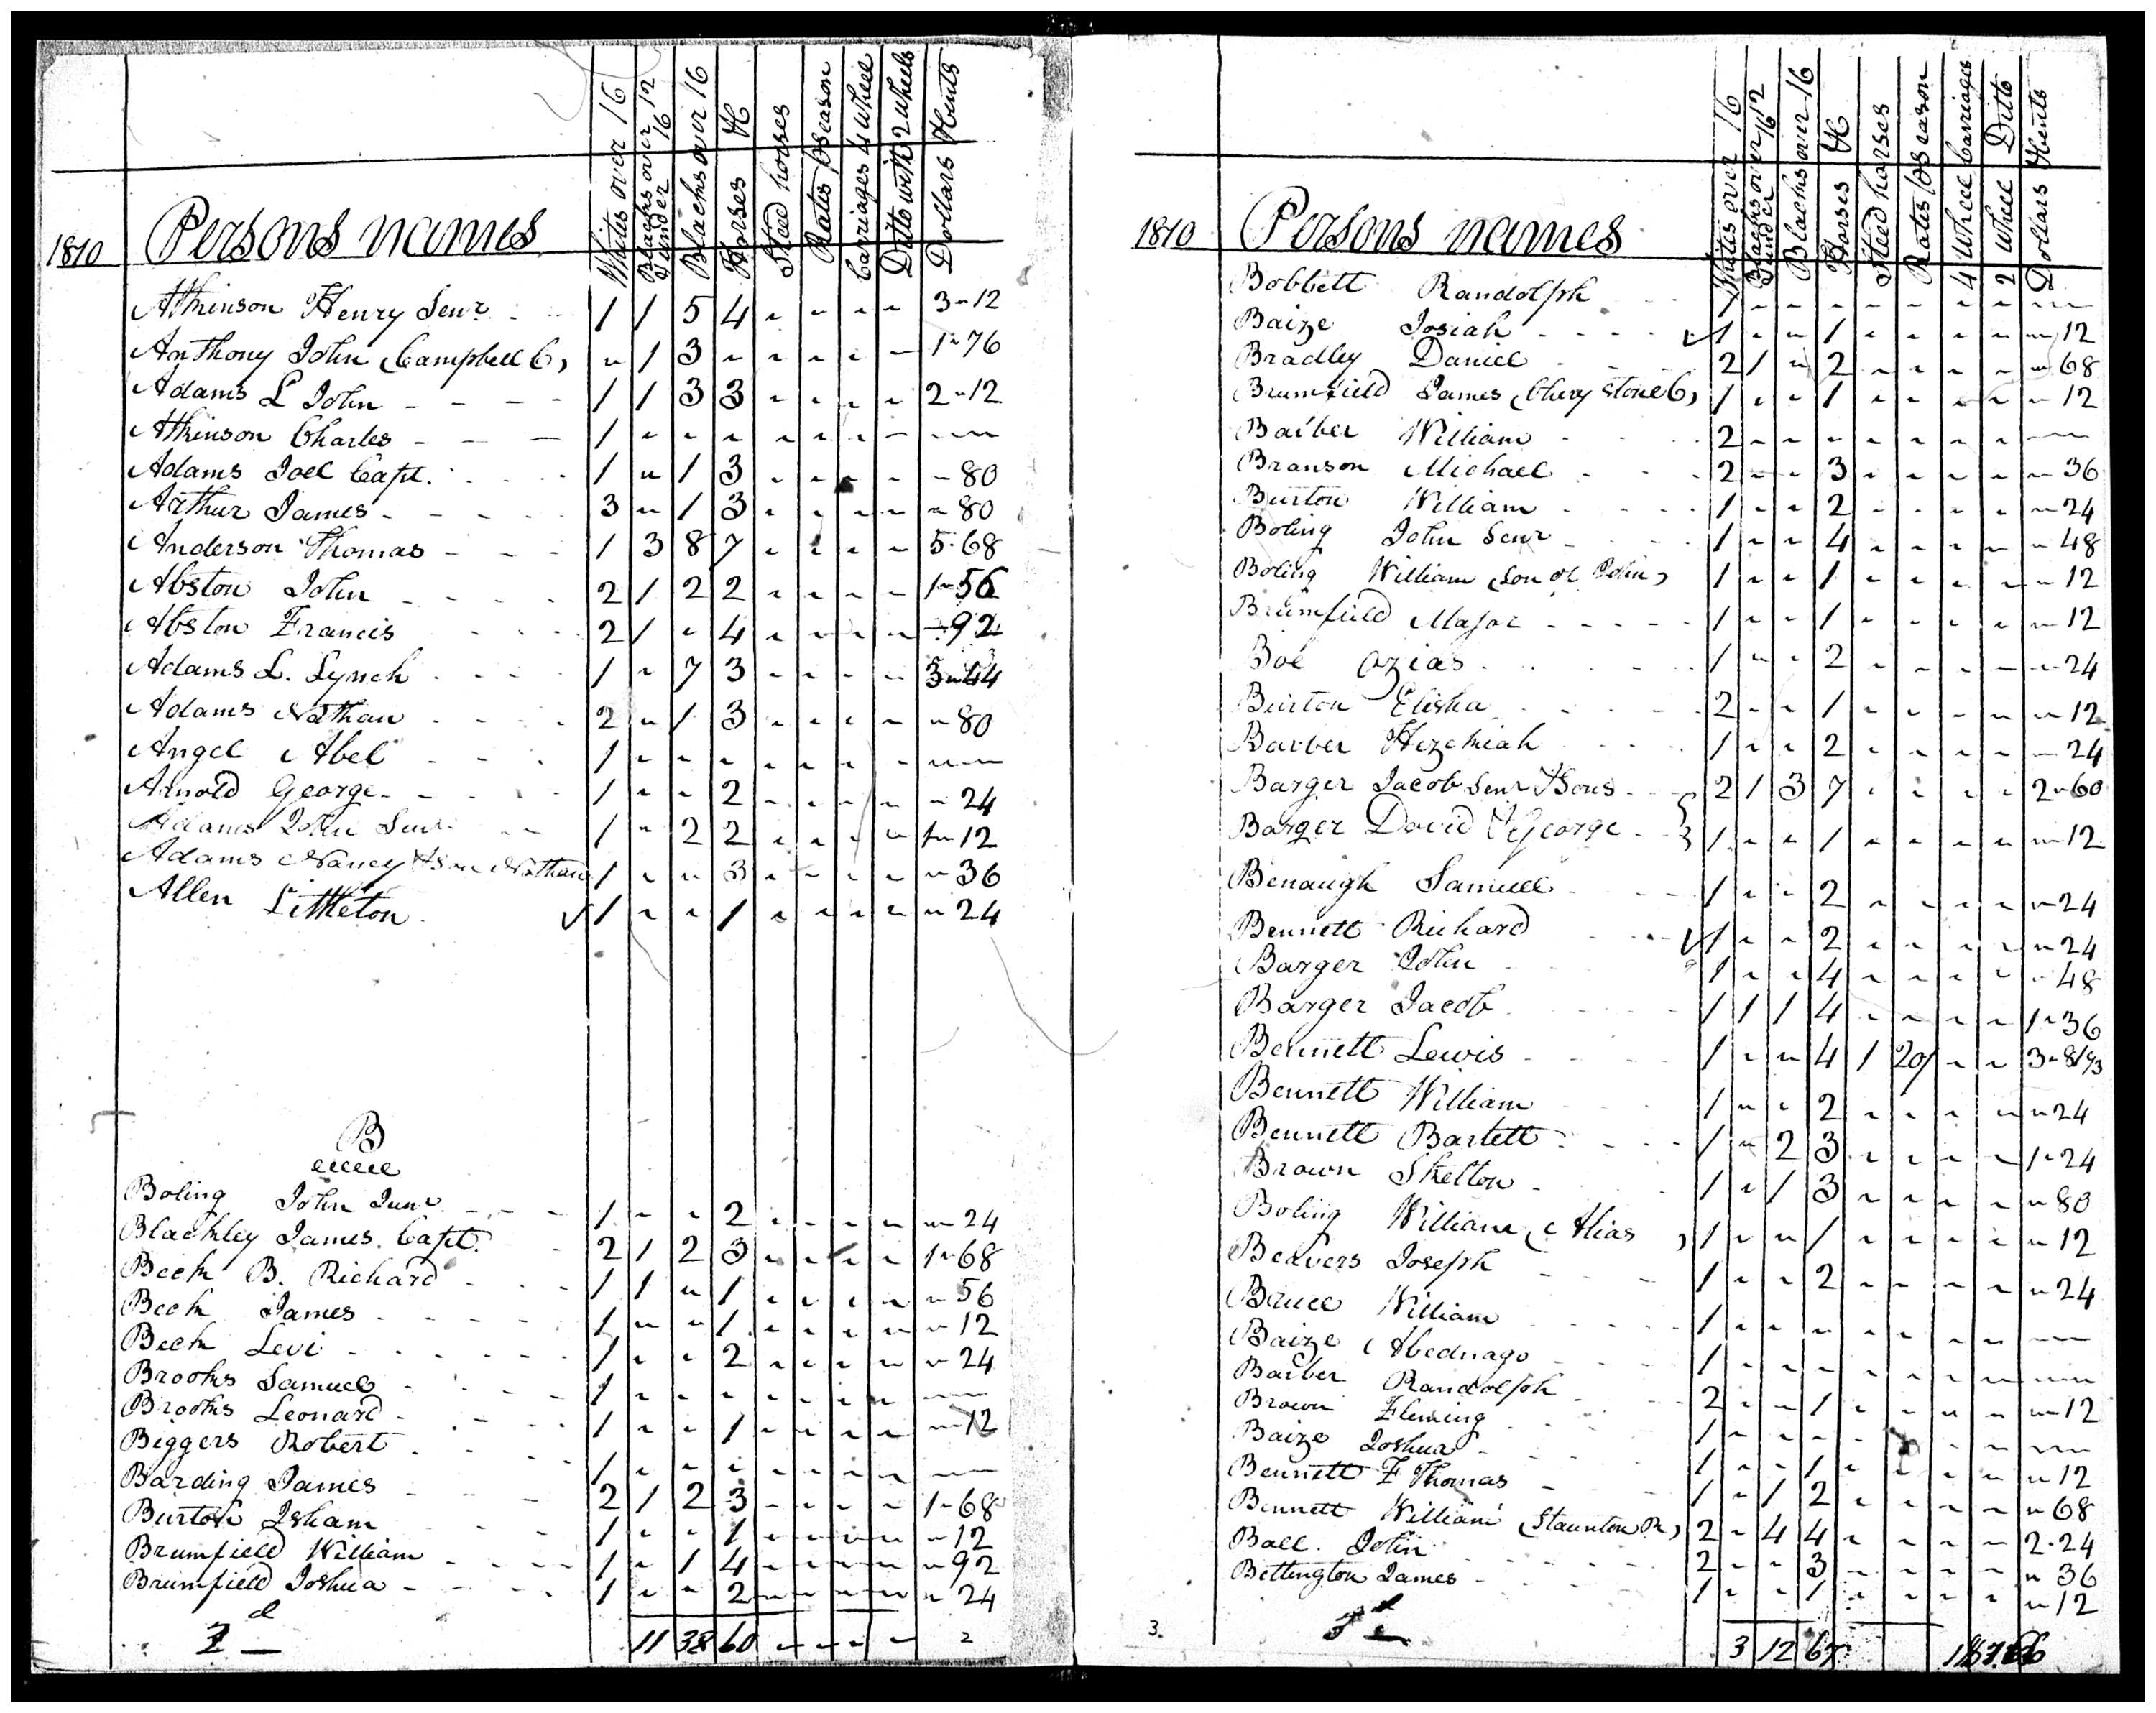 1810 Persons names Whites over 16 Blacks over 12 & under 16 Blacks over 16 Horses &c Steed horses Rates pr season Carriages 4 wheel Ditto with 2 wheels Dollars & Cents
Atkinson Henry Senr 1 1 5 4 - - - - 3-12
Anthony John (Campbell C) - 1 3 - - - - - 1-76
Adams L John - - - - 1 1 3 3 - - - - 2-12
Atkinson Charles - - - 1 - - - - - - - --
Adams Joel Capt. 1 - 1 3 - - - - -80
Arthur James 3 - 1 3 - - - - -80
Anderson Thomas 1 3 8 7 - - - - 5-68
Abston John 2 1 2 2 - - - - 1-56
Abston Francis 2 1 - 4 - - - - -92
Adams L. Lynch 1 - 7 3 - - - - 3-44
Adams Nathan 2 - 1 3 - - - - -80
Angel Abel 1 - - - - - - - --
Arnold George 1 - - 2 - - - - -24
Adams John Senr 1 - 2 2 - - - - 1-12
Adams Nancy & son Nathan 1 - - 3 - - - - -36
Allen Littleton ✓ 1 - - 1 - - - - -24
B
Boling John Junr 1 - - 2 - - - - -24
Blackley James Capt. 2 1 2 3 - - - - 1-68
Beck B. Richard 1 1 - 1 - - - - -56
Beck James 1 - - 1 - - - - -12
Beck Levi 1 - - 2 - - - - -24
Brooks Samuel 1 - - - - - - - --
Brooks Leonard 1 - - 1 - - - - -12
Biggers Robert 1 - - - - - - - --
Barding James 2 1 2 3 - - - - 1-68
Burton Isham 1 - - 1 - - - - -12
Brumfield William 1 - 1 4 - - - - -92
Brumfield Joshua 1 - - 2 - - - - -24
11 38 60 - - - - 2
1810 Persons names Whites over 16 Blacks over 12 & under 16 Blacks over 16 Horses &c Steed horses Rates pr season 4 Wheel Carriages 2 Wheel Ditto Dollars & Cents
Bobbett Randolph 1 - - - - - - - --
Baize Josiah ✓ 1 - - 1 - - - - -12
Bradley Daniel 2 1 - 2 - - - - -68
Brumfield James (Chery Stone C) 1 - - 1 - - - - -12
Barber William 2 - - - - - - - --
Branson Michael 2 - - 3 - - - - -36
Burton William 1 - - 2 - - - - -24
Boling John Senr 1 - - 4 - - - - -48
Boling William (son of John) 1 - - 1 - - - - -12
Brumfield Major 1 - - 1 - - - - -12
Boe Ozias 1 - - 2 - - - - -24
Burton Elisha 2 - - 1 - - - - -12
Barber Hezekiah 1 - - 2 - - - - -24
Barger Jacob Senr & Sons 2 1 3 7 - - - - 2-60
Barger David & George 1 - - 1 - - - - -12
Benaugh Samuel 1 - - 2 - - - - -24
Bennett Richard ✓ 1 - - 2 - - - - -24
Barger John 1 - - 4 - - - - -48
Barger Jacob 1 1 1 4 - - - - 1-36
Bennett Lewis 1 - - 4 1 20/ - - 3-81 1/3
Bennett William 1 - - 2 - - - - -24
Bennett Bartlett 1 - 2 3 - - - - 1-24
Brown Skelton 1 - 1 3 - - - - -80
Boling William (Alias ) 1 - - 1 - - - - -12
Beavers Joseph 1 - - 2 - - - - -24
Bruce William 1 - - - - - - - --
Baize Abednago 1 - - - - - - - --
Barber Randolph 2 - - 1 - - - - -12
Brown Fleming 1 - - - - - - - --
Baize Joshua 1 - - 1 - - - - -12
Bennett F Thomas 1 - 1 2 - - - - -68
Bennett William (Staunton R) 2 - 4 4 - - - - 2-24
Ball John 2 - - 3 - - - - -36
Bettington James 1 - - 1 - - - - -12
3. 3 12 67